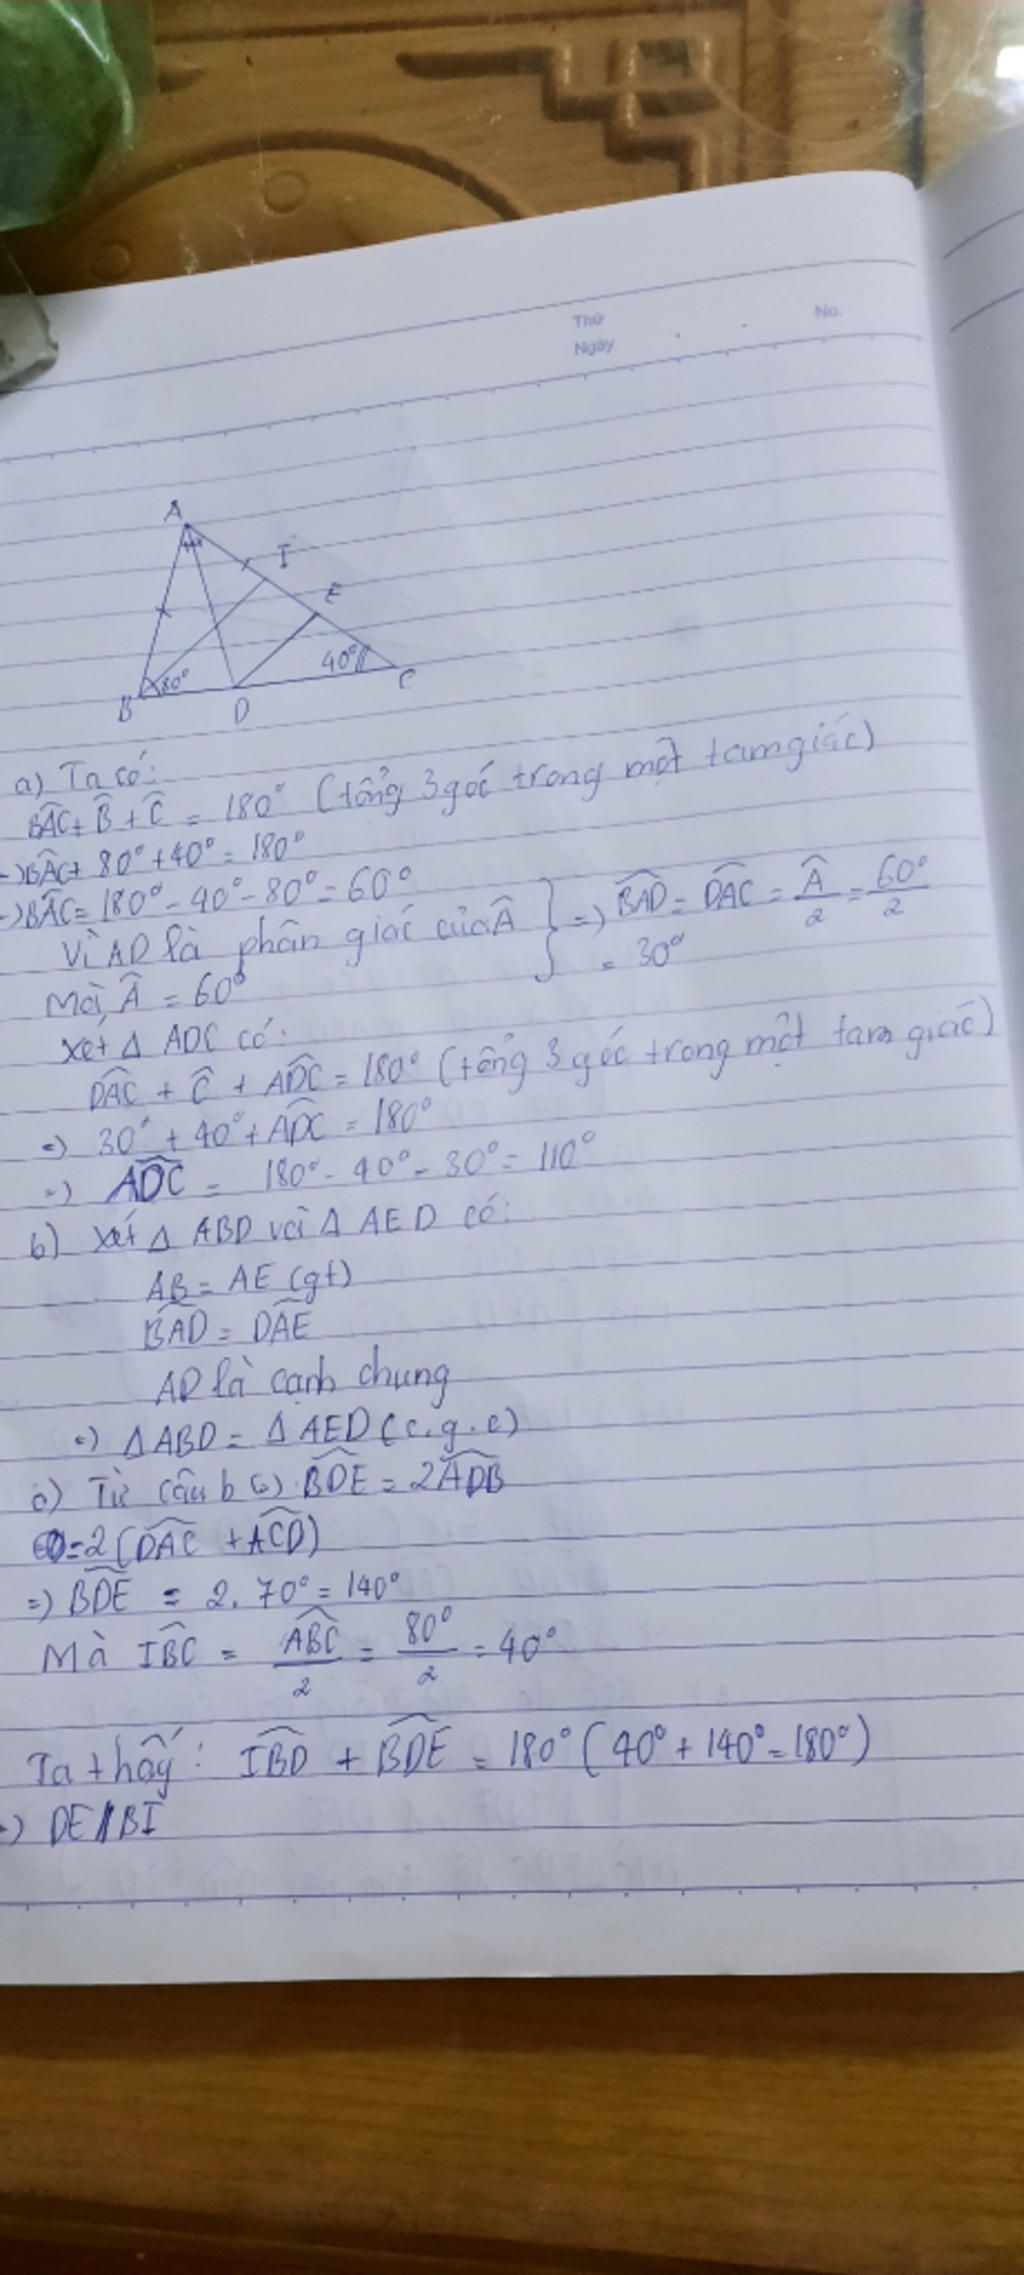 Thứ
Ngày
No.
A
I
E
B 80°
D
40°
C
a) Ta có:
BÂC + B̂ + Ĉ = 180° (tổng 3 góc trong một tam giác)
-) BÂC + 80° + 40° = 180°
-) BÂC = 180° - 40° - 80° = 60°
Vì AD là phân giác của Â } =) BÂD = DÂC = Â/2 = 60°/2
Mà Â = 60° = 30°
xét Δ ADC có:
DÂC + Ĉ + AD̂C = 180° (tổng 3 góc trong một tam giác)
=) 30° + 40° + AD̂C = 180°
=) AD̂C = 180° - 40° - 30° = 110°
b) xét Δ ABD và Δ AED có:
AB = AE (gt)
BÂD = DÂE
AD là cạnh chung
=) Δ ABD = Δ AED (c.g.c)
c) Từ câu b =) BD̂E = 2AD̂B
= 2 (DÂC + AĈD)
=) BD̂E = 2. 70° = 140°
Mà IB̂C = AB̂C/2 = 80°/2 = 40°
Ta thấy: IB̂D + BD̂E = 180° (40° + 140° = 180°)
-) DE // BI